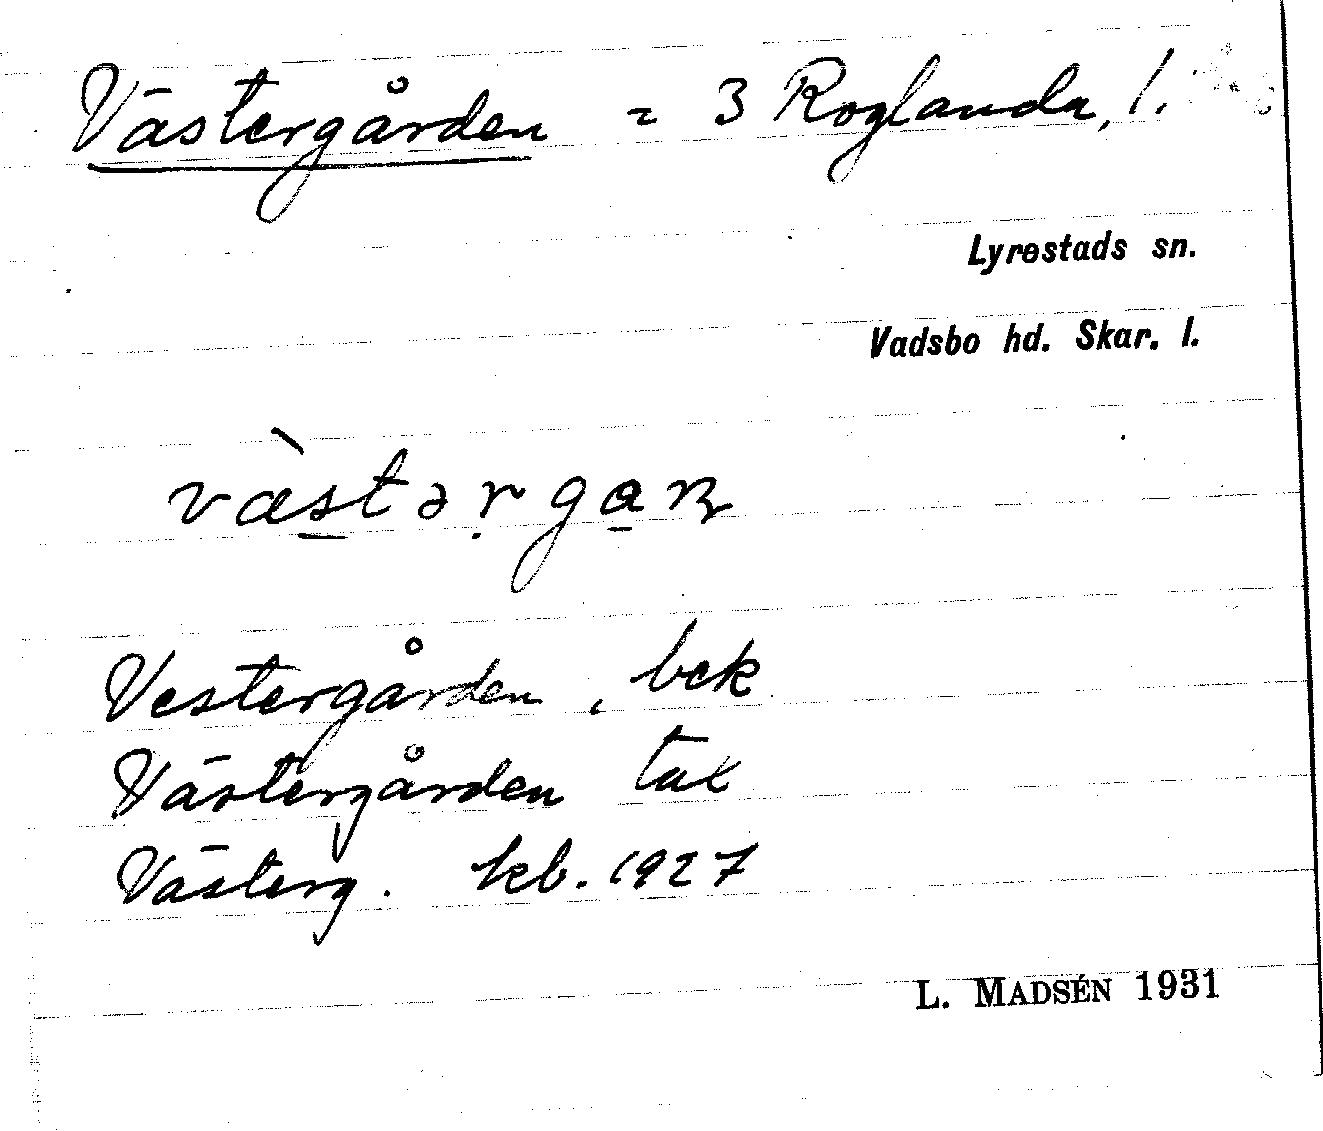 Västergården = 3 Roglanda, l.
Lyrestads sn.
Vadsbo hd. Skar. l.
Vestergården, bek
Västergården tax
Västerg. kb. 1927
L. MADSÉN 1931